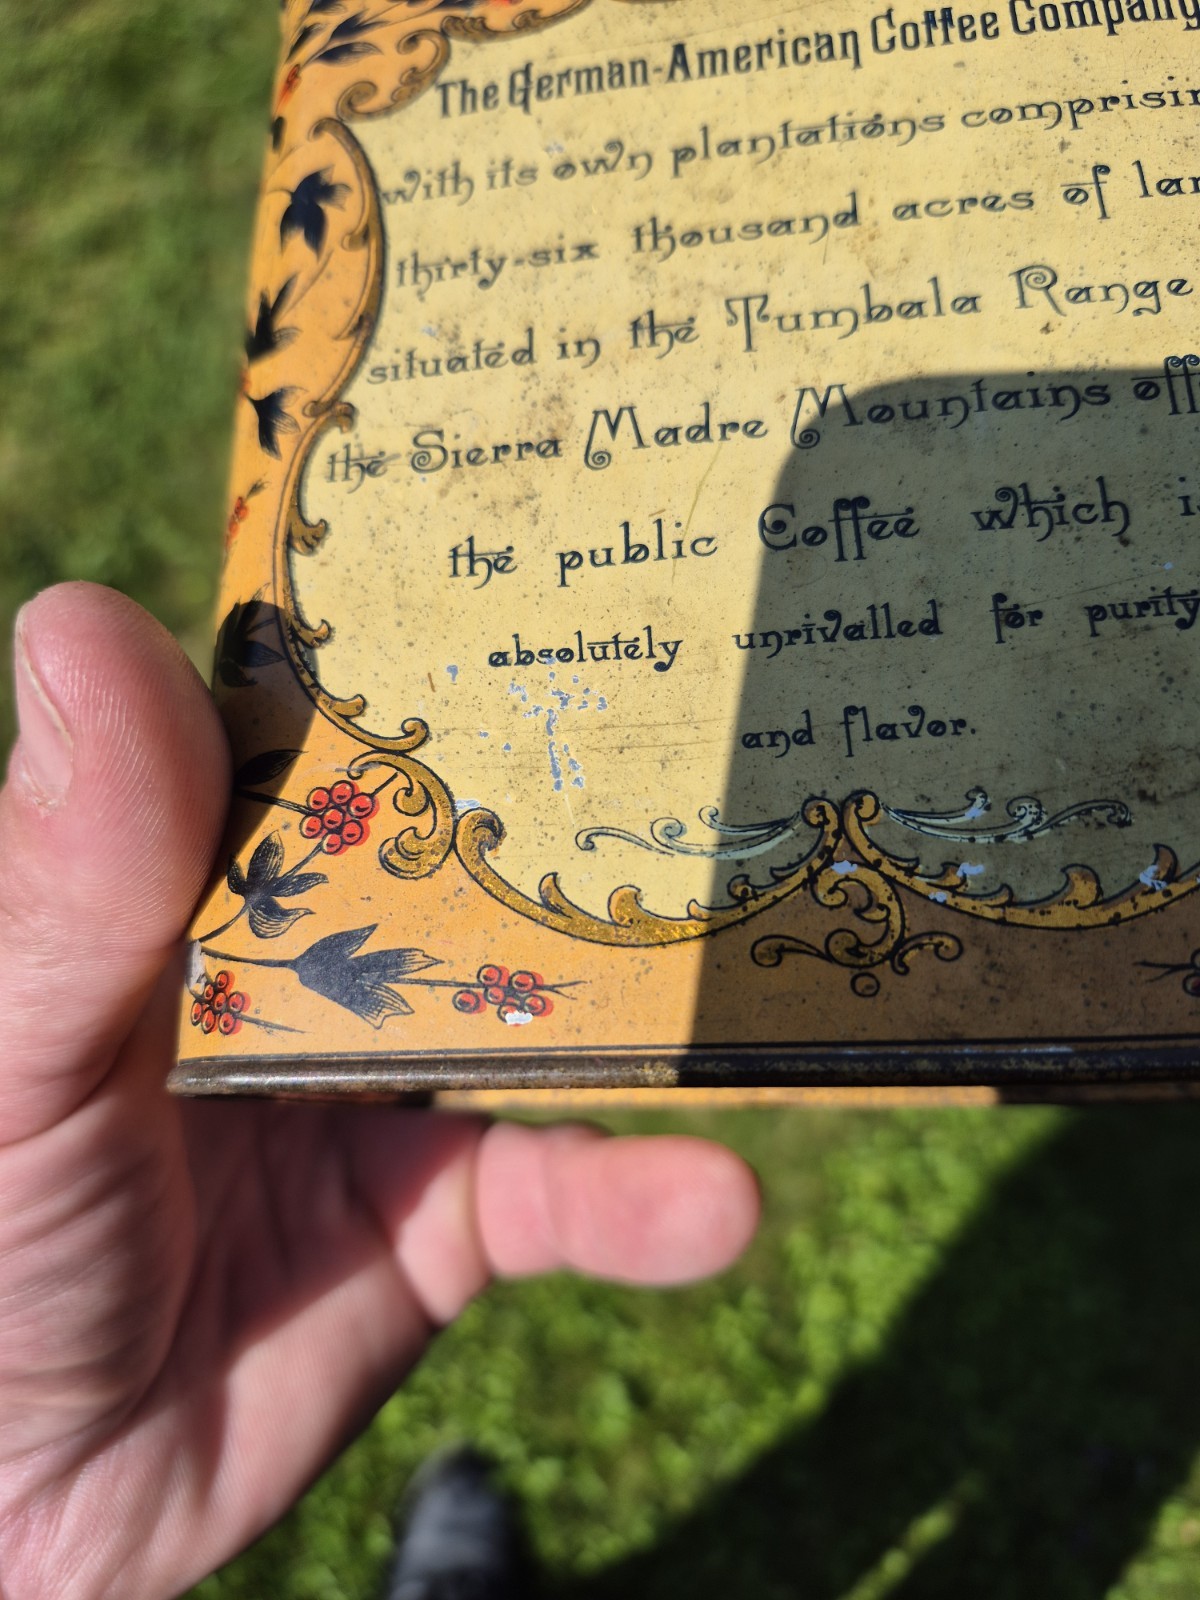 The German-American Coffee Company
with its own plantations comprisin
thirty-six thousand acres of lan
situated in the Tumbala Range
the Sierra Madre Mountains off
the public Coffee which i
absolutely unrivalled for purity
and flavor.